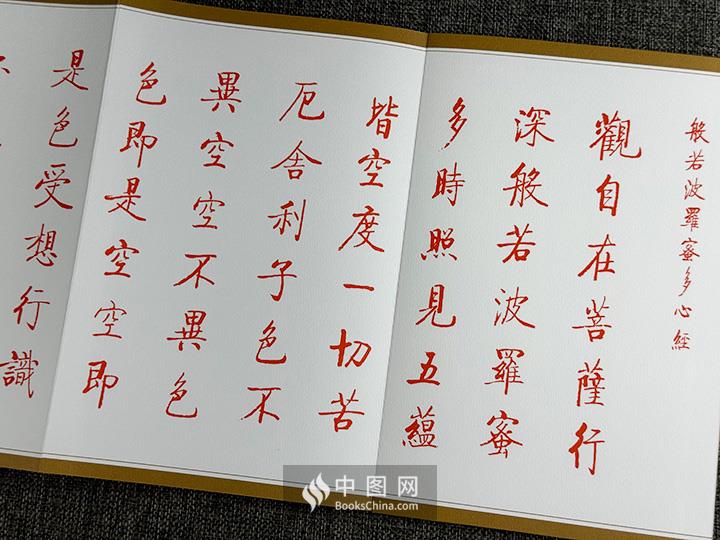 般若波羅蜜多心經
觀自在菩薩行
深般若波羅蜜
多時照見五蘊
皆空度一切苦
厄舍利子色不
異空空不異色
色即是空空即
是色受想行識
中图网
BooksChina.com